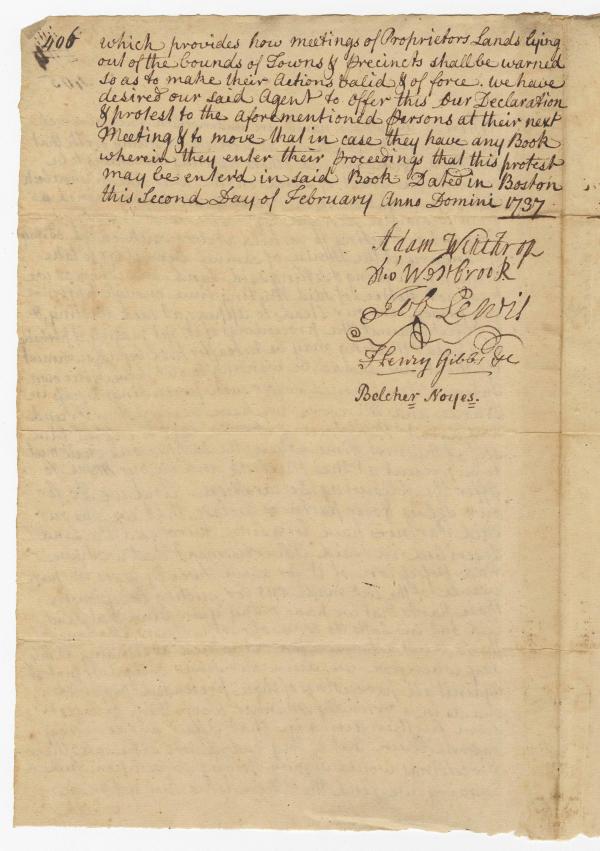 406
which provides how meetings of Proprietors Lands lying
out of the bounds of Towns & Precincts shall be warned
so as to make their Actions valid & of force. we have
desired our said Agent to offer this Our Declaration
& protest to the aforementioned Persons at their next
Meeting & to move that in case they have any Book
wherein they enter their Proceedings that this protest
may be enterd in said Book Dated in Boston
this Second Day of February Anno Domini 1737.
Adam Winthrop
Tho' Westbrook
Job Lewis
Henry Gibbs &c
Belcher Noyes.